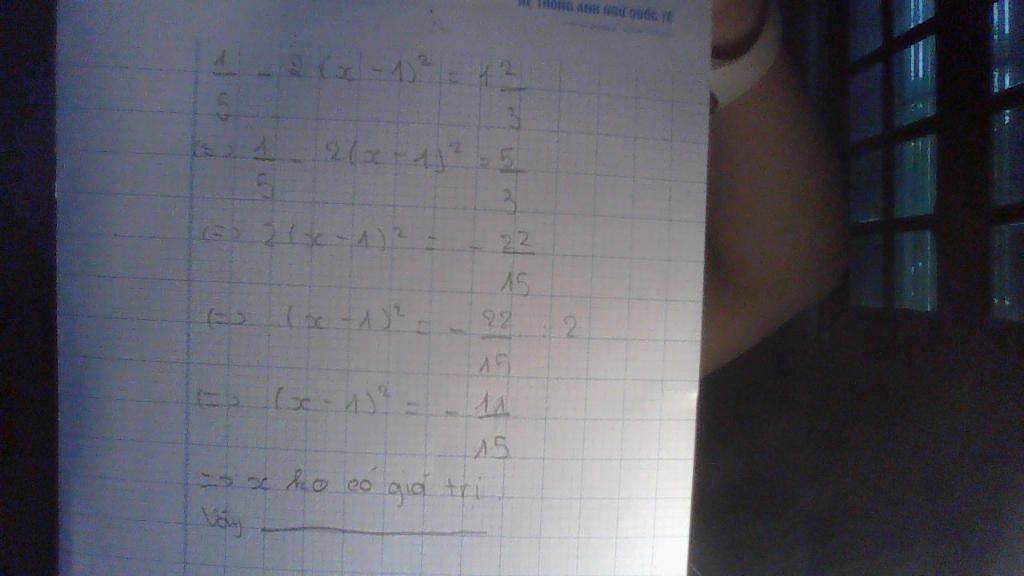 HỆ THỐNG ANH NGỮ QUỐC TẾ
1/5 - 2(x-1)² = 1 2/3
<=> 1/5 - 2(x-1)² = 5/3
<=> 2(x-1)² = - 22/15
<=> (x-1)² = - 22/15 : 2
<=> (x-1)² = - 11/15
=> x ko có giá trị.
Vậy